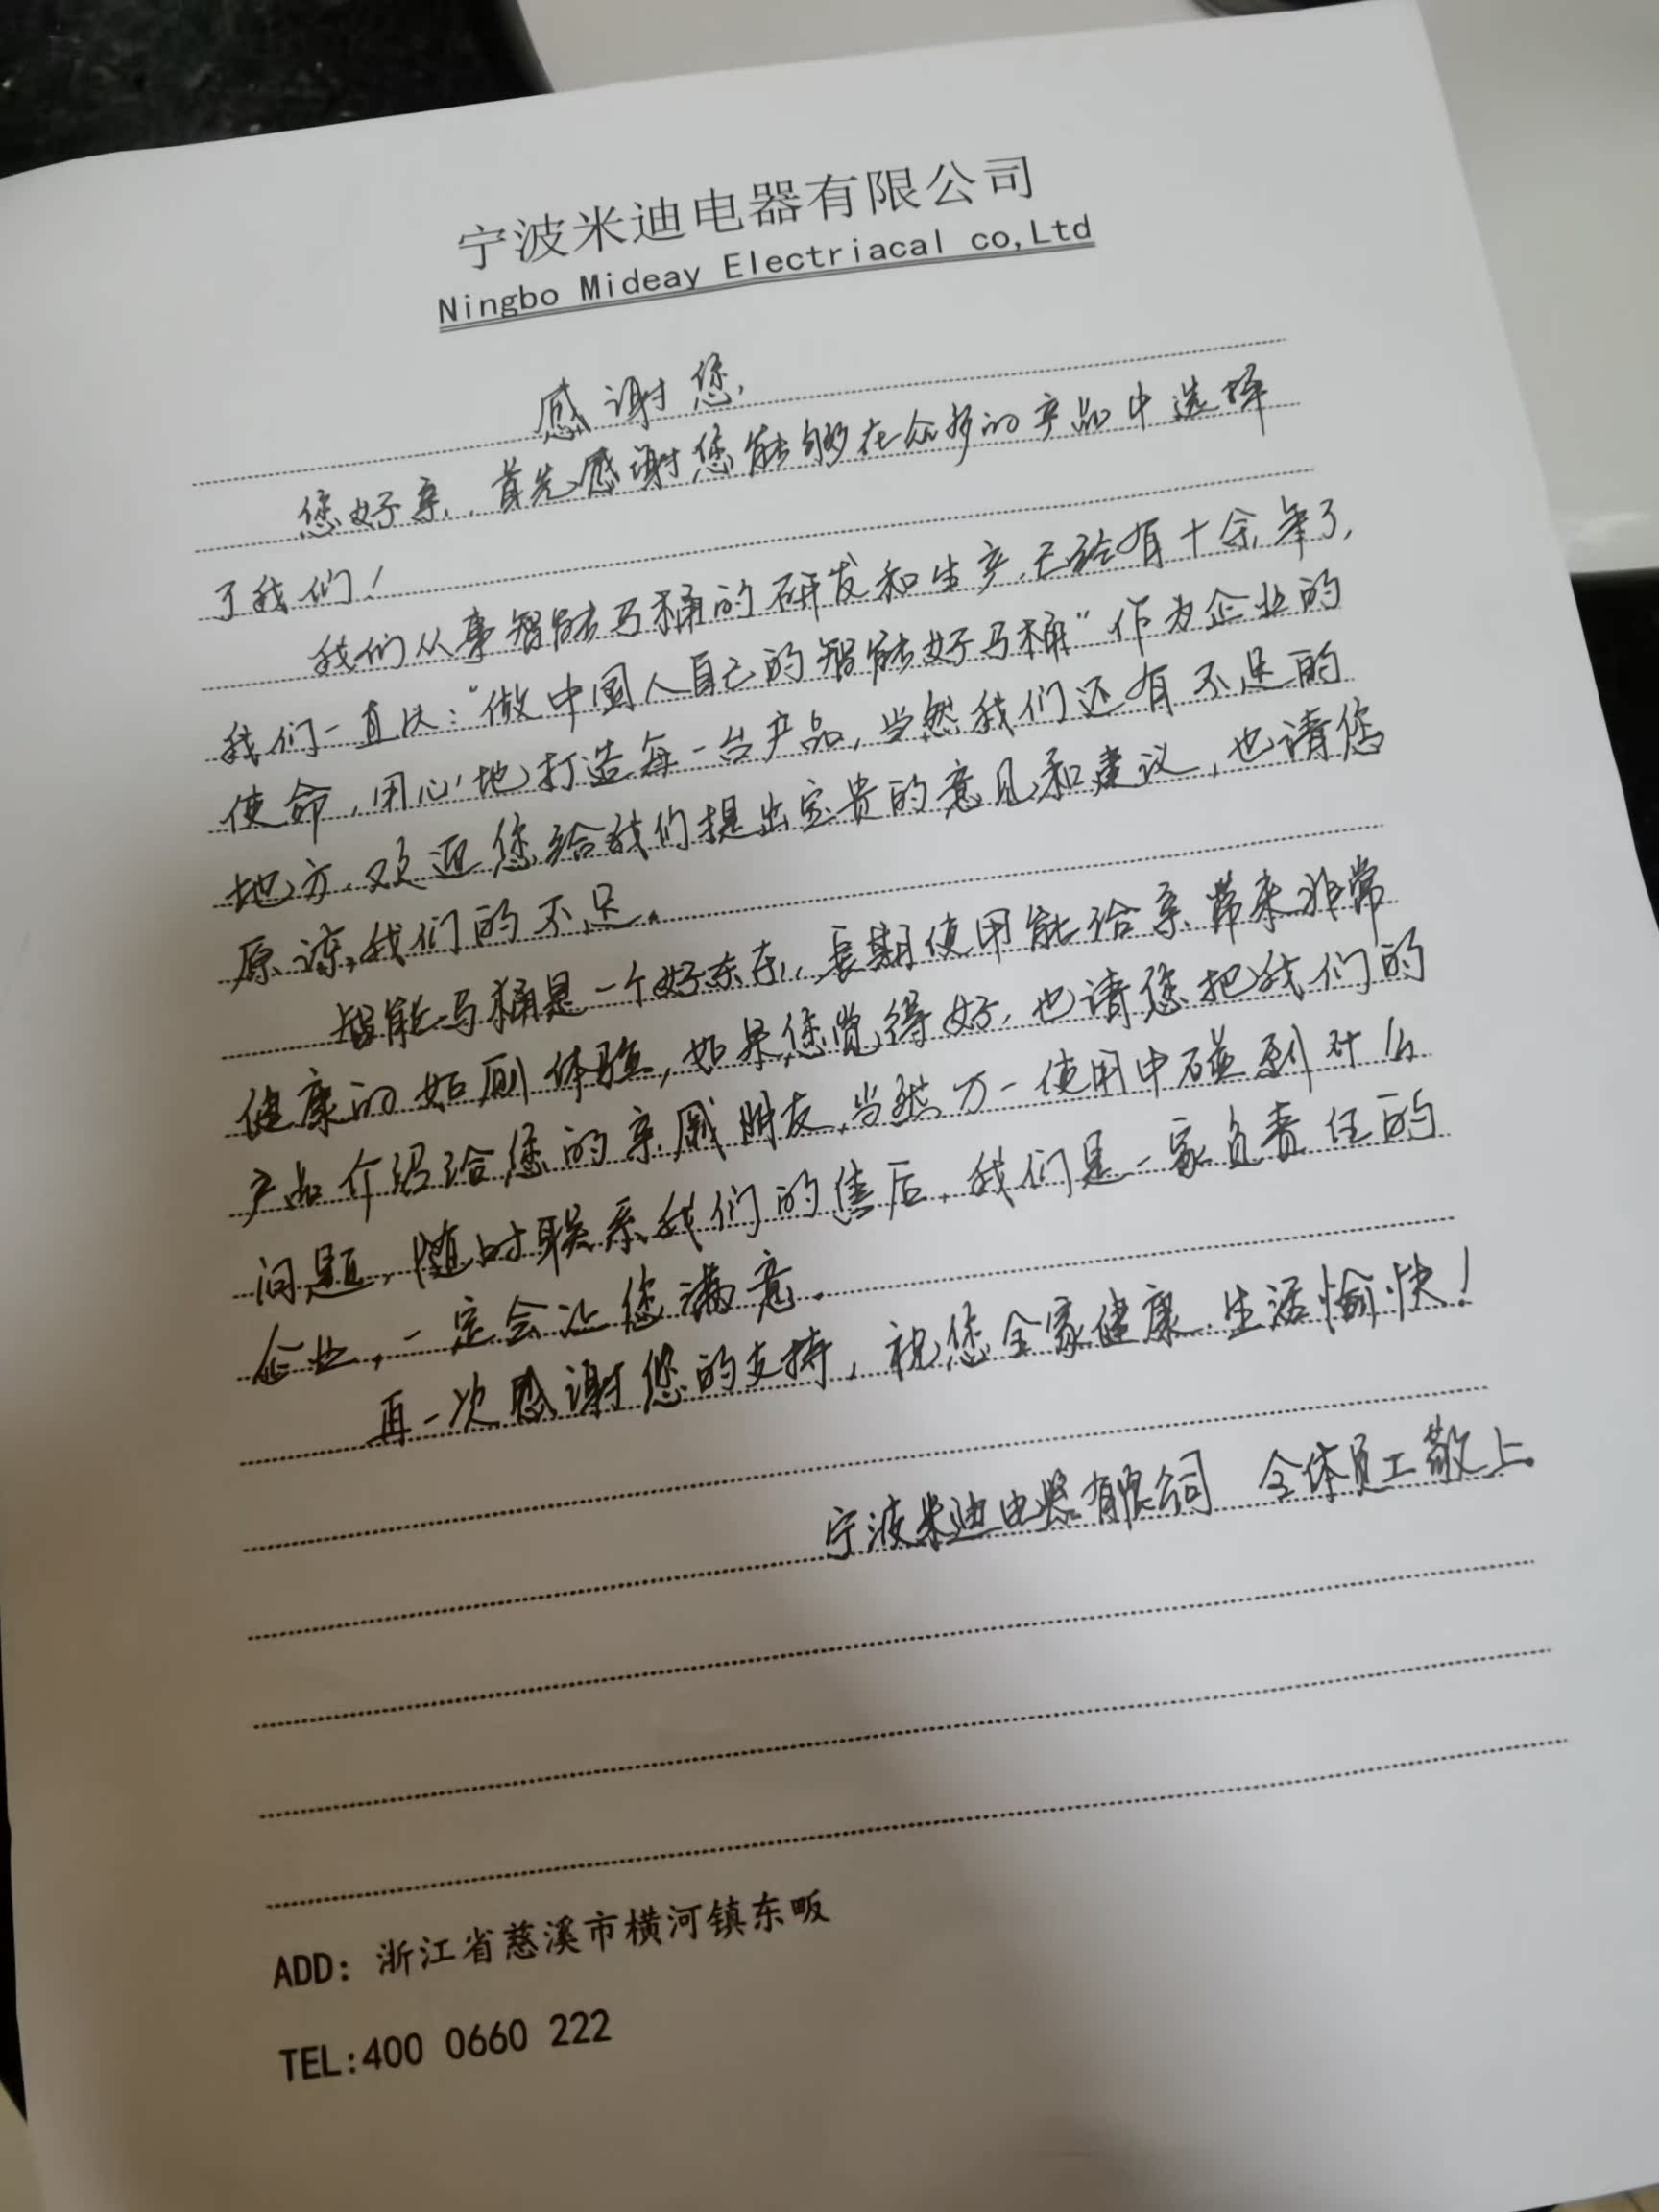 宁波米迪电器有限公司
Ningbo Mideay Electriacal co,Ltd
感谢您,
您好亲,首先感谢您能够在众多的产品中选择
了我们！
我们从事智能马桶的研发和生产,已经有十余年了,
我们一直以："做中国人自己的智能好马桶"作为企业的
使命,用心地打造每一台产品,当然我们还有不足的
地方,欢迎您给我们提出宝贵的意见和建议,也请您
原谅我们的不足。
智能马桶是一个好东东,长期使用能给亲带来非常
健康的如厕体验,如果您觉得好,也请您把我们的
产品介绍给您的亲戚朋友,当然万一使用中碰到什么
问题,随时联系我们的售后,我们是一家负责任的
企业,一定会让您满意.
再一次感谢您的支持,祝您全家健康.生活愉快！
宁波米迪电器有限公司 全体员工敬上.
ADD: 浙江省慈溪市横河镇东畈
TEL:400 0660 222